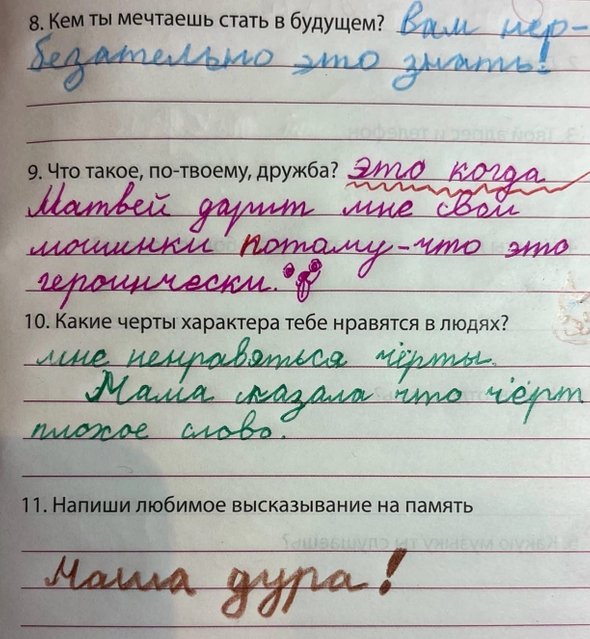 8. Кем ты мечтаешь стать в будущем? вам нер-
безательно это знать!
9. Что такое, по-твоему, дружба? это когда
Матвей дарит мне свои
мошинки потаму-что это
героинчески.
10. Какие черты характера тебе нравятся в людях?
мне ненравяться чёрты.
Мама сказала что чёрт
плохое слово.
11. Напиши любимое высказывание на память
Маша дура!